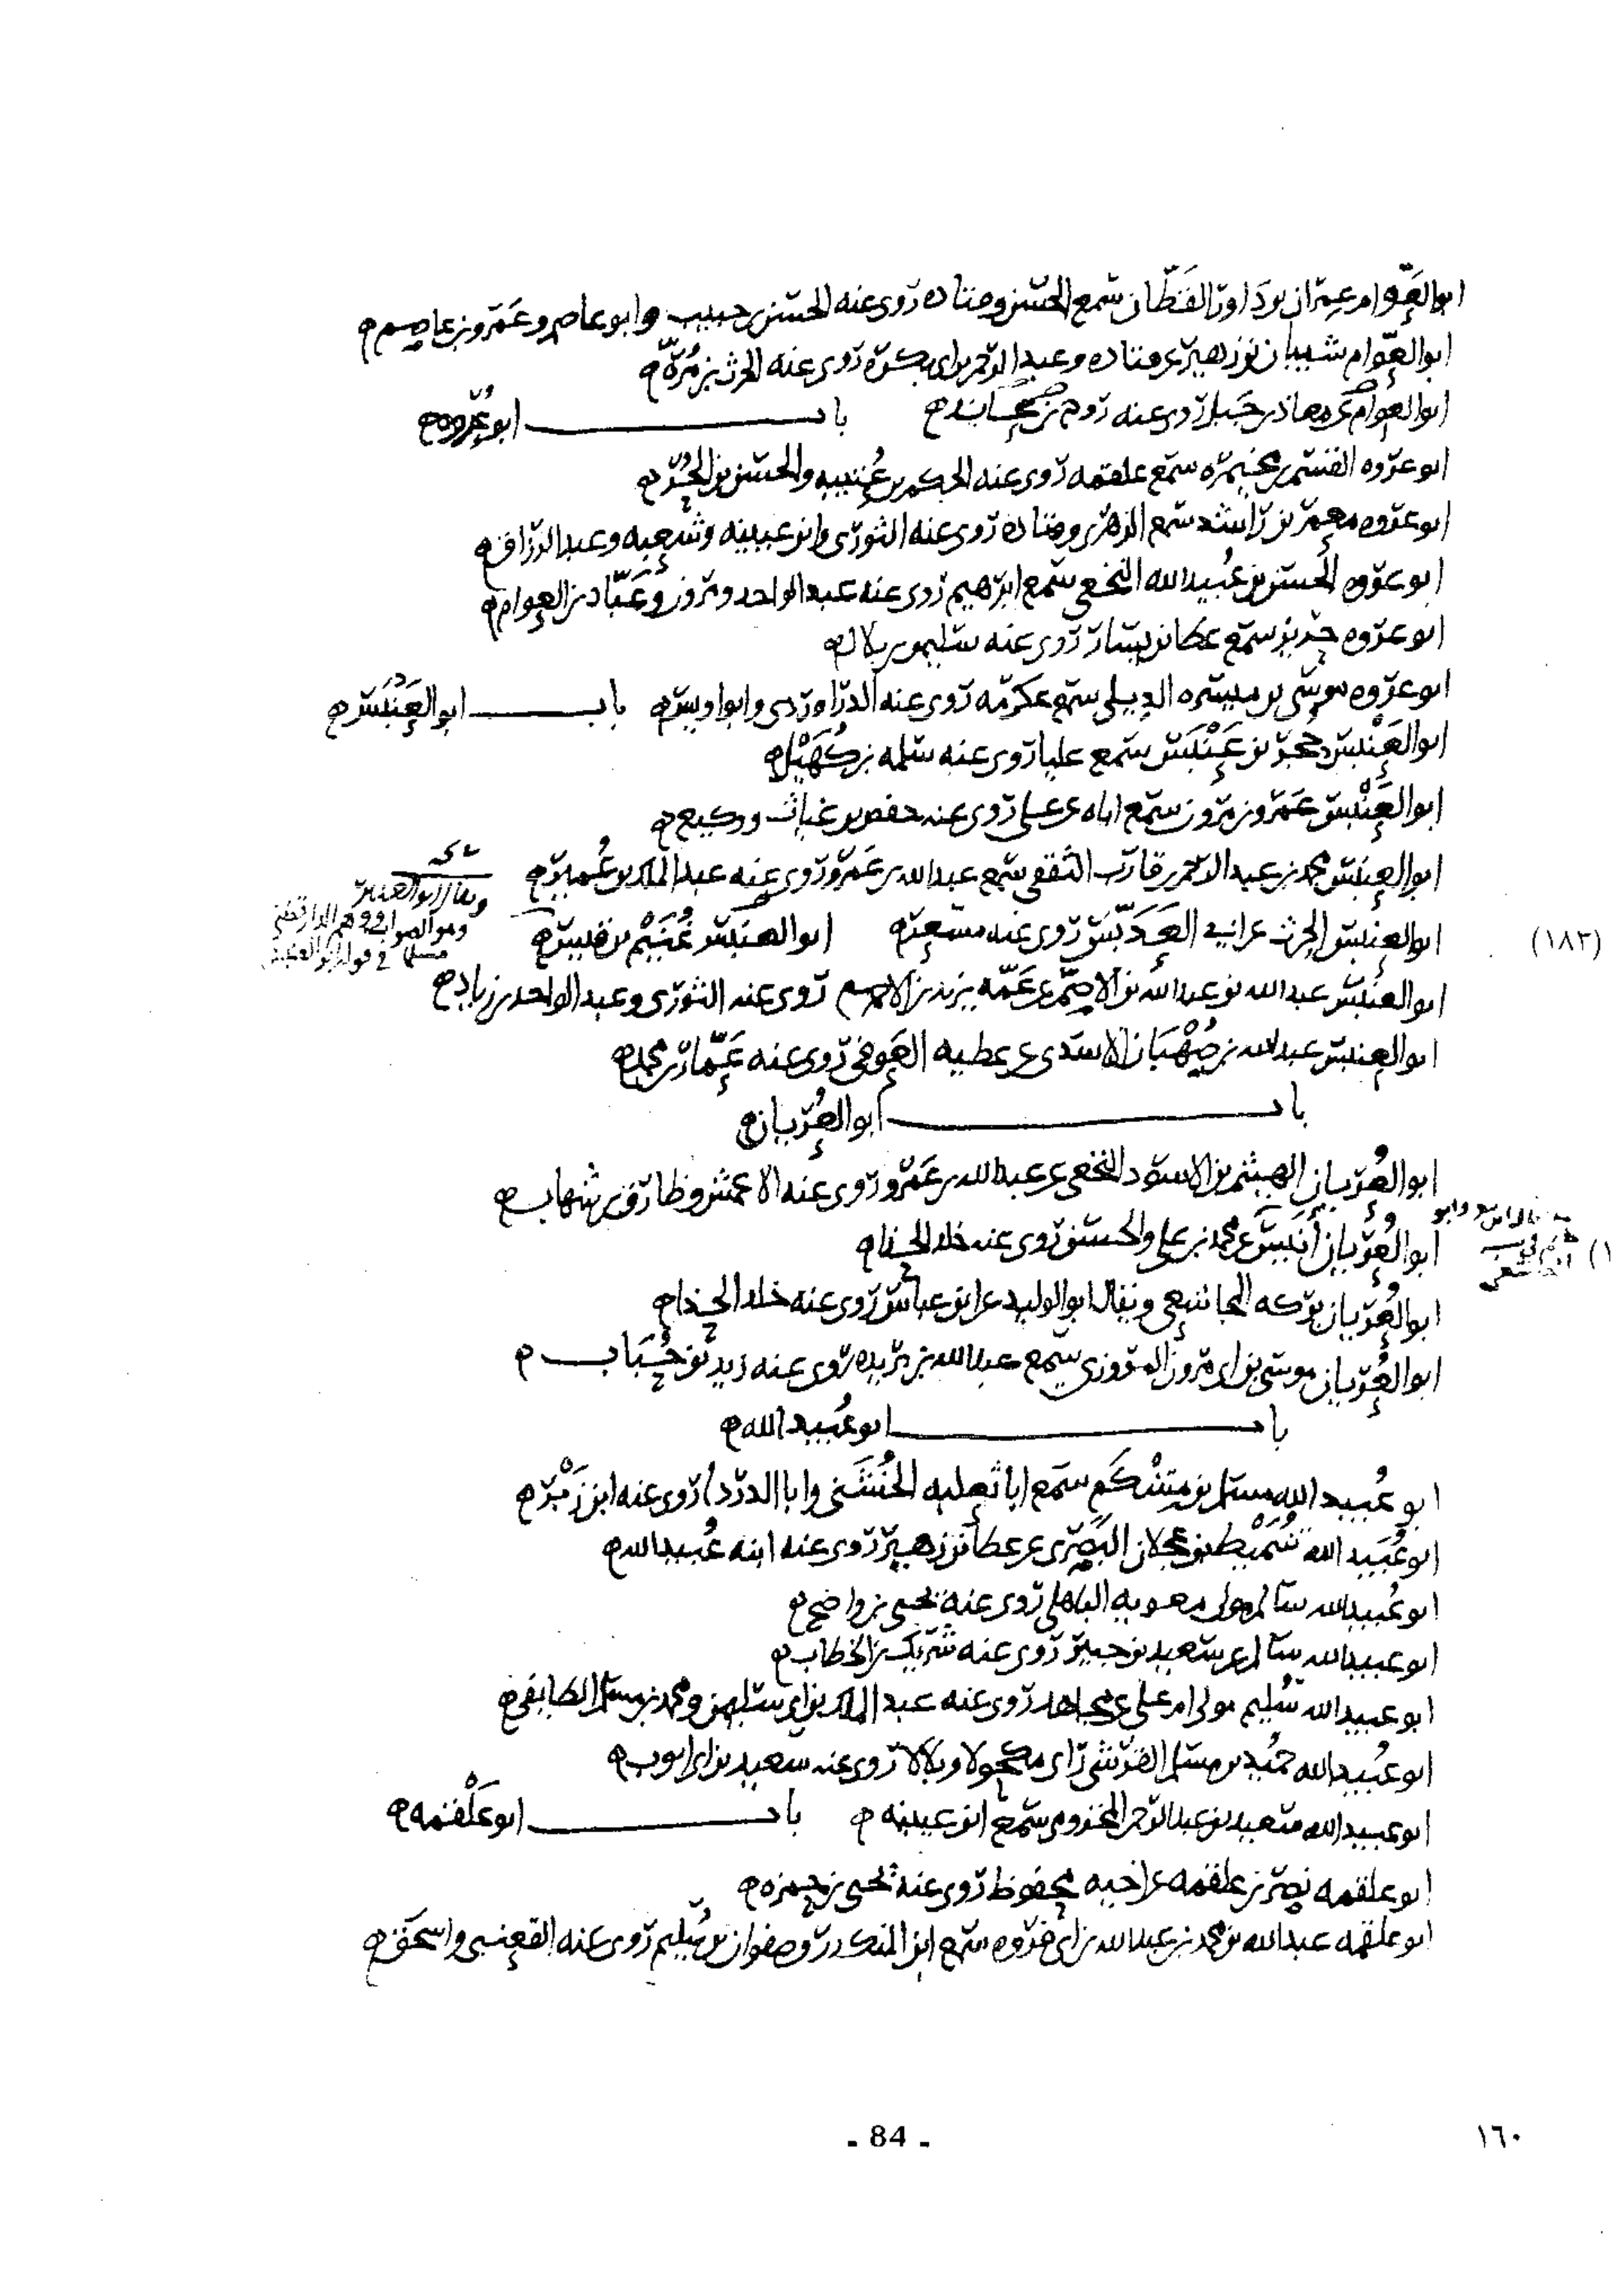 ابو العَوّام عِمرَان بن دَاوَر القَطّان سَمع الحسَن وقتاده رَوى عنه الحسَن بن حبيب وابو عاصم وعَمرو بن عاصم
ابو العَوّام شيبان بن زهير عن قتاده وعبد الرحمن بن ابى بكرَه رَوى عنه الحرث بن مُرّة
ابو العوام عن معاذ بن جَبَل رَوى عنه روح بن باب ابو عُروه
ابو عروه القسم بن مخيمره سمع علقمه رَوى عنه الحكم بن عُتيبه والحسَن بن الحُرّ
ابو عروه معمر بن رَاشد سمع الزهرى وقتاده رَوى عنه الثورى وابن عيينه وشعبه وعبد الرزاق
ابو عروه الحسَن بن عُبيد الله النخعى سمع ابرهيم رَوى عنه عبد الواحد ومروَن وعَبّاد بن العوام
ابو عروه حريز سمع عطا بن يسَار رَوى عنه سليمن بن بلال
ابو عروه موسَى بن ميسَره الديلى سمع عكرمه رَوى عنه الدرَاوردى وابو اويس باب ابو العَنبَس
ابو العَنْبس حُجر بن عَنْبَس سمع عليا رَوى عنه سلمه بن كُهَيْل
ابو العَنْبس عَمرو بن مروَن سمع اباه عن على رَوى عنه حفص بن غياث ووكيع
ابو العنبس محمد بن عبد الرحمن بن قارب الثقفى سمع عبد الله بن عَمرو رَوى عنه عبد الملك بن عُمير
ويقال ابو العنبر
وهو الصواب ووهم الدارقطنى
مسلما فى قوله ابو العنبس
ابو العنبس الحرث عن ابى العَدَبّس رَوى عنه مسعر ابو العنبس غُنَيْم بن قيس
(١٨٣)
ابو العنبس عبد الله بن عبد الله بن الاصمّ عن عَمّه يزيد بن الاصم رَوى عنه الثورى وعبد الواحد بن زياد
ابو العنبس عبد الله بن صُهْبَان الاسَدى عن عطيه العَوفى رَوى عنه عَمّار بن محمد
باب ابو العُريان
ابو العُريان الهيثم بن الاسود النخعى عن عبد الله بن عَمرو رَوى عنه الاعمش وطارق بن شهاب
ابو العُريان أنيس عن محمد بن على والحسَن رَوى عنه خلد الحذا
ابو العُريان بركه المجاشعى ويقال ابو الوليد عن ابن عباس رَوى عنه خلد الحذا
ابو العُريان موسَى بن ابى مروَن المروزى سمع عبد الله بن بريده رَوى عنه زيد بن حُبَاب
باب ابو عُبيد الله
ابو عُبيد الله مسلم بن مِشْكَم سمع ابا ثعلبه الخُشَنى وابا الدردا رَوى عنه ابن زَبْر
ابو عُبَيد الله شُمَيْط بن عجلان البَصرى عن عطا بن زهير رَوى عنه ابنه عُبيد الله
ابو عُبيد الله سَالم مولى معويه الباهلى رَوى عنه يحيى بن واضح
ابو عبيد الله سَالم عن سَعيد بن جبير رَوى عنه شريك بن الخطاب
ابو عبيد الله سُليم مولى ام على عن مجاهد رَوى عنه عبد الملك بن ابى سليمن ومحمد بن مسلم الطايفى
ابو عُبيد الله حُميد بن مسلم القرشى رَاى مكحولا وبلالا رَوى عنه سعيد بن ابى ايوب
ابو عبيد الله سَعيد بن عبد الرحمن المخزومى سمع ابن عيينه باب ابو عَلْقمه
ابو علقمه نصر بن علقمه عن اخيه محفوظ رَوى عنه يحيى بن حمزه
ابو علقمه عبد الله بن محمد بن عبد الله بن ابى فروه سمع ابن المنكدر وصفوان بن سُليم رَوى عنه القعنبى واسحَق
- 84 -
١٦٠